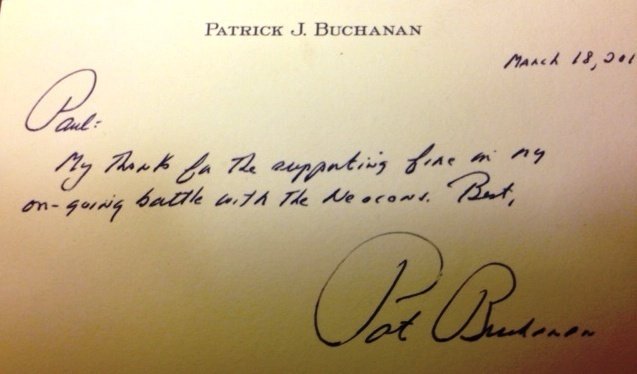 PATRICK J. BUCHANAN
March 18, 201
Paul:
My thanks for the supporting fire in my
on-going battle with the Neocons. Best,
Pat Buchanan